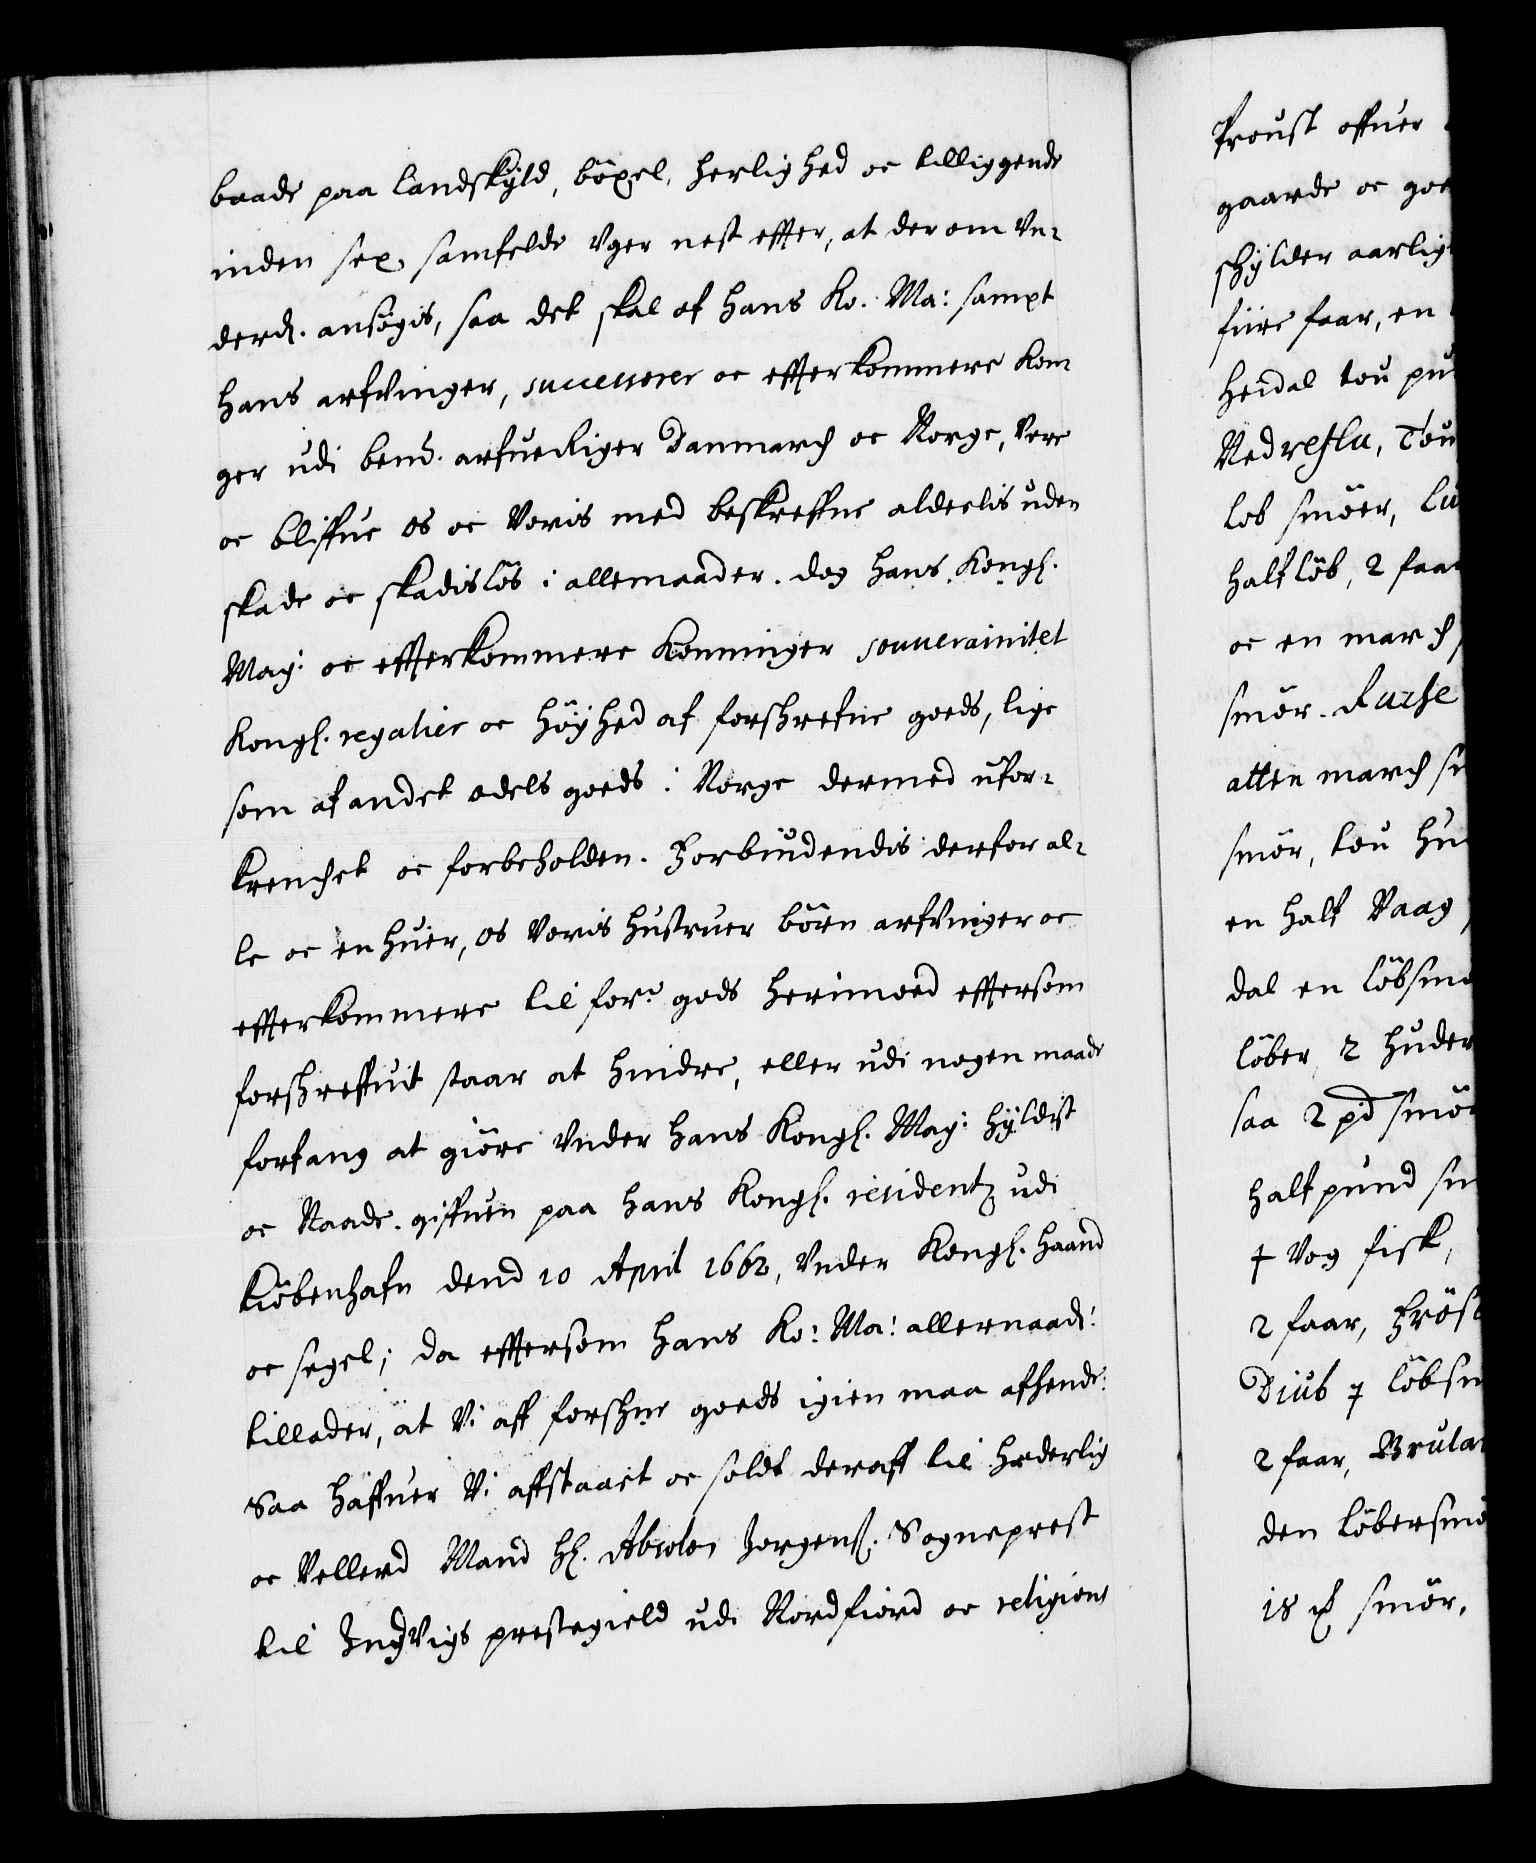 baade paa landskyld, böxel, herlighed oc tilliggende
inden sex samfelde Vger nest effter, at der om Vn-
derd. ansögis, saa det skal af hans Ko. Ma: sampt
hans arfvinger, successorer oc effterkommere Kon-
ger udi bemd. arfueRiger Danmarch oc Norge, Vere
oc bliffue os oc Voris med beskreffne aldeelis uden
skade oc skadislös i allemaader. dog hans Kongl.
May: oc effterkommere Konninger souverainitet
Kongl. regalier oc Höyhed af forschrefne goeds, lige
som af andet odels goeds i Norge dermed ufor-
krenchet oc forbeholden. Forbiudendis derfor al-
le oc en huer, os Voris hustruer börn arfvinger oc
effterkommere til for.ne gods herimoed efftersom
forschreffuit staar at hindre, eller udi nogen maade
forfang at giöre Vnder hans Kongl. May: hyldist
oc Naade. giffuen paa hans Kongl. residentz udi
Kiöbenhafn dend 10 April 1662, Vnder Kongl. haand
oc segel; da efftersom hans Ko: Ma: allernaad:
tillader, at Vi aff forschne goeds igien maa afhende:
Saa haffuer Vi affstaaet oc soldt deraff til hæderlig
oc Vellerd Mand Hl. Absolon Jorgens. Sogneprest
til Indvigs prestegield udi Nordfiord oc religions
Proust offuer
gaarde oc goe
schylder aarlig
fiire faar, en
heidal tou pu
Nedreflu, Tou
lob smöer, Lu
half löb, 2 faar
oc en march
smör.
atten march sm
smör, tou hu
en half Vaag
dal en löbsmö
löber 2 huder
saa 2 pd smör
half pund sm
4 Vog fisk,
2 faar, Fröse
Diub 7 löbsm
2 faar, Brula
den löbersmö
18 smör,